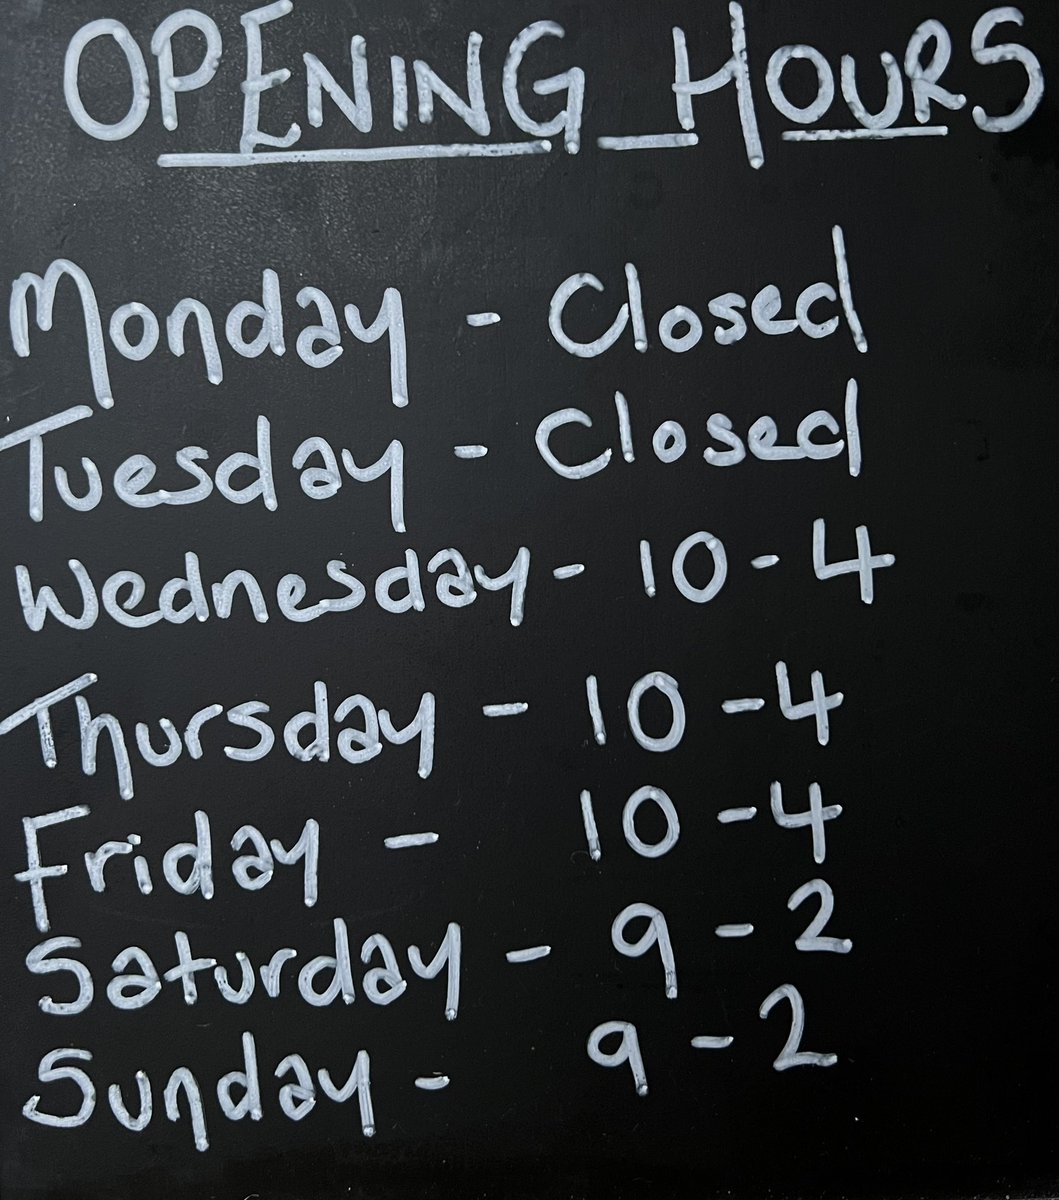 OPENING HOURS
Monday - Closed
Tuesday - Closed
Wednesday - 10 - 4
Thursday - 10 - 4
Friday - 10 - 4
Saturday - 9 - 2
Sunday - 9 - 2